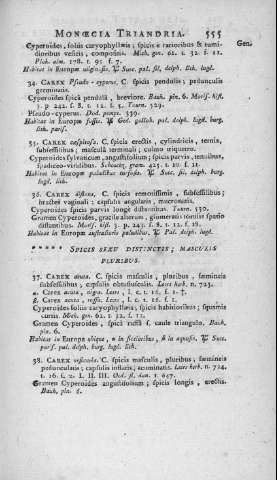 MONŒCIA TRIANDRIA. 555
Cyperoides, foliis caryophyllæis; spicis e rarioribus & tumi-
dioribus vesicis, compositis. Mich. gen. 62. t. 32. f. 11.
Pluk. alm. 178. t. 95. f. 7.
Habitat in Europæ uliginosis. ♃ Suec. pal. sil. delph. lith. lugd.
34. CAREX Pseudo-cyperus. C. spicis pendulis; pedunculis
geminatis.
Cyperoides spica pendula, breviore. Bauh. pin. 6. Moris. hist.
3. p. 242. s. 8. t. 12. f. 5. Tourn. 529.
Pseudo-cyperus. Dod. pempt. 339.
Habitat in Europæ fossis. ♃ Ged. gallob. pal. delph. lugd. burg.
lith. paris.
35. CAREX cæspitosa. C. spicis erectis, cylindricis, ternis,
subsessilibus; mascula terminali; culmo triquetro.
Cyperoides sylvaticum, angustifolium; spicis parvis, tenuibus,
spadiceo-viridibus. Scheuchz. gram. 425. t. 10. f. 11.
Habitat in Europæ paludibus turfosis. ♃ Suec. sil. delph. burg.
lugd. lith.
36. CAREX distans. C. spicis remotissimis, subsessilibus;
bractea vaginali; capsulis angularis, mucronatis.
Cyperoides spicis parvis longe distantibus. Tourn. 530.
Gramen cyperoides, gracile alterum; glomeratis torulis spatio
distantibus. Moris. hist. 3. p. 243. s. 8. t. 12. f. 18.
Habitat in Europæ australioris paludibus. ♃ Pal. delph. lugd.
***** SPICIS SEXU DISTINCTIS; MASCULIS
PLURIBUS.
37. CAREX acuta. C. spicis masculis, pluribus, fœmineis
subsessilibus; capsulis obtusiusculis. Leers herb. n. 723.
α. Carex acuta, nigra. Leers, l. c. t. 16. f. 1.
β. Carex acuta, ruffa. Leers, l. c. t. 16. f. 1.
Cyperoides foliis caryophyllæis, spicis habitioribus; squamis
curtis. Mich. gen. 62. t. 32. f. 12.
Gramen Cyperoides, spica ruffa f. caule triangulo. Bauh.
pin. 6.
Habitat in Europæ aliqua, α in siccioribus, β in aquosis. ♃ Suec.
paris. pal. delph. burg. lugd. lith.
38. CAREX vesicaria. C. spicis masculis, pluribus; fœmineis
pedunculatis; capsulis inflatis, acuminatis. Leers herb. n. 724.
t. 16. f. 2. I. II. III. Oed. fl. dan. t. 647.
Gramen Cyperoides angustifolium; spicis longis, erectis.
Bauh. pin. 6.
Gen.